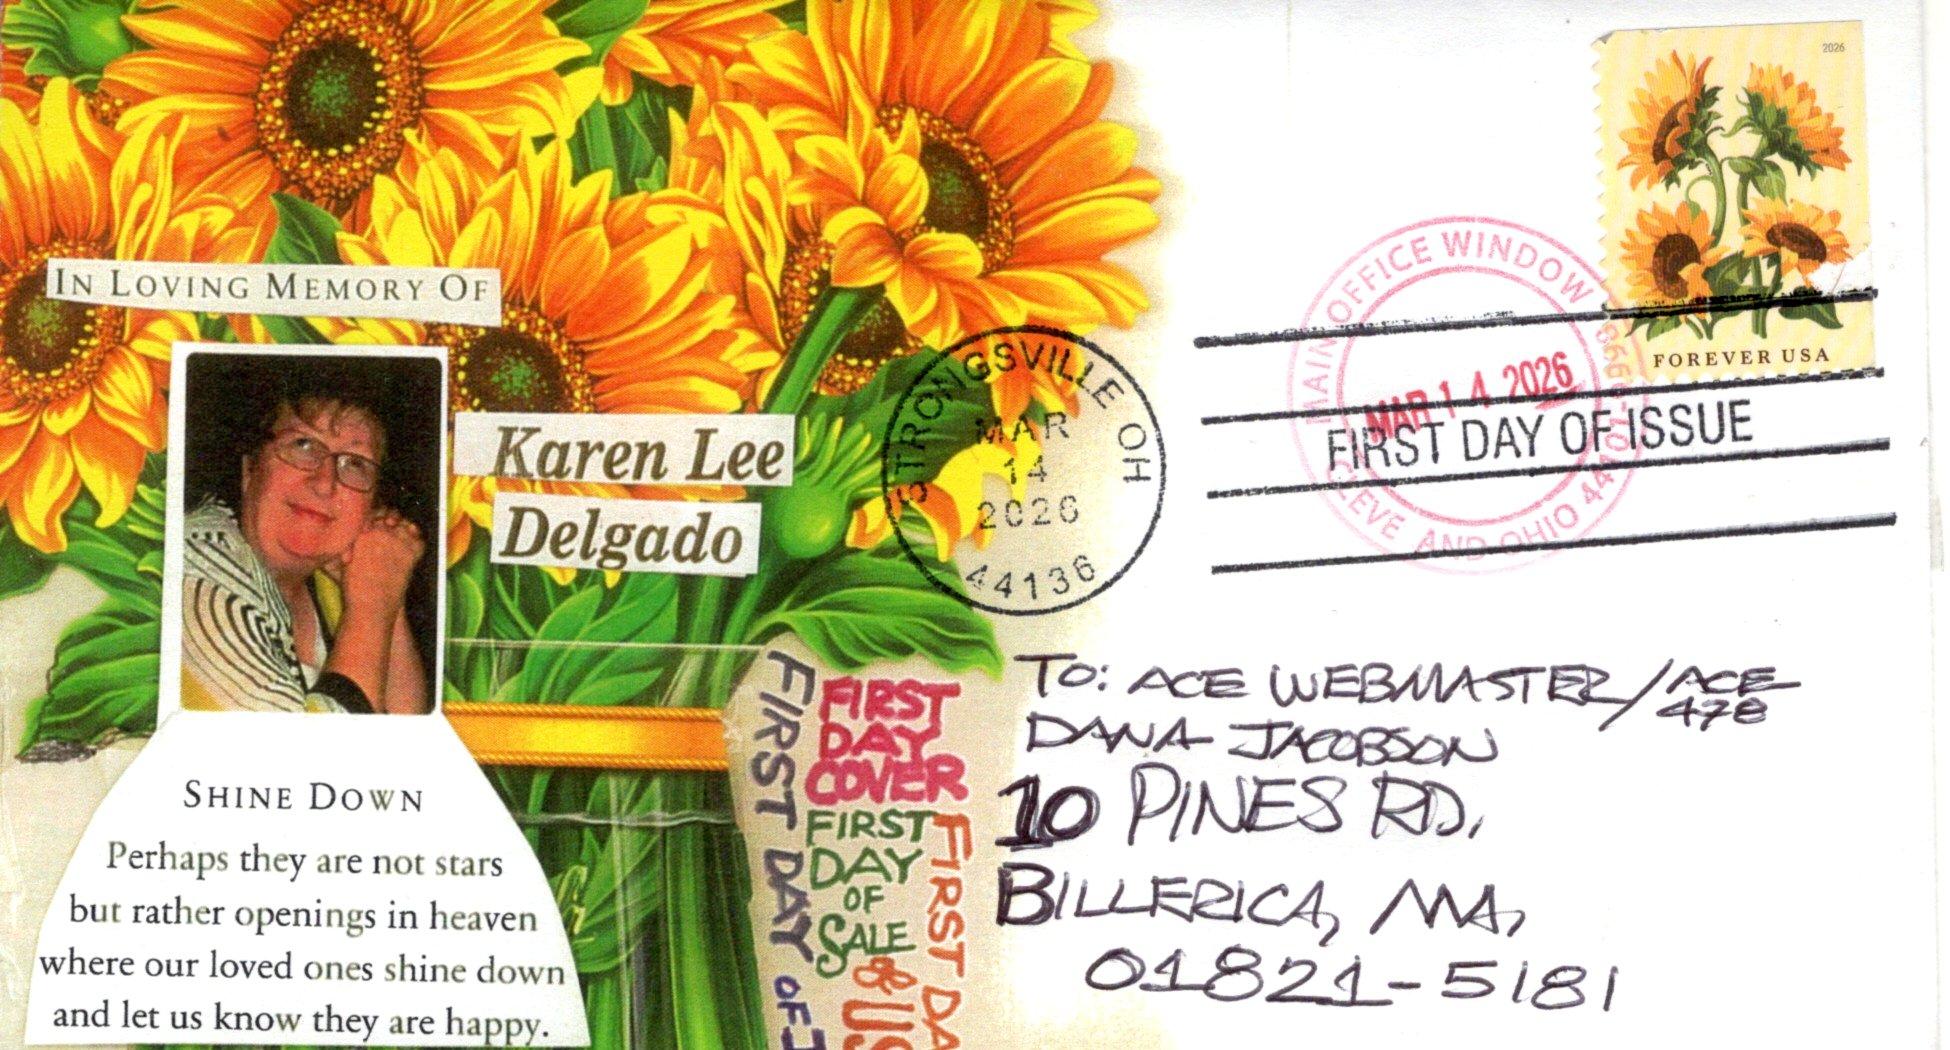 2026
FOREVER USA
MAIN OFFICE WINDOW
MAR 14 2026
OHIO
STRONGSVILLE OH
MAR
14
2026
44136
FIRST DAY OF ISSUE
IN LOVING MEMORY OF
Karen Lee
Delgado
SHINE DOWN
Perhaps they are not stars
but rather openings in heaven
where our loved ones shine down
and let us know they are happy.
FIRST DAY OF
FIRST
DAY
COVER
FIRST
DAY
OF
SALE
FIRST
TO: ACE WEBMASTER/ACE
478
DANA JACOBSON
10 PINES RD,
BILLERICA, MA,
01821-5181